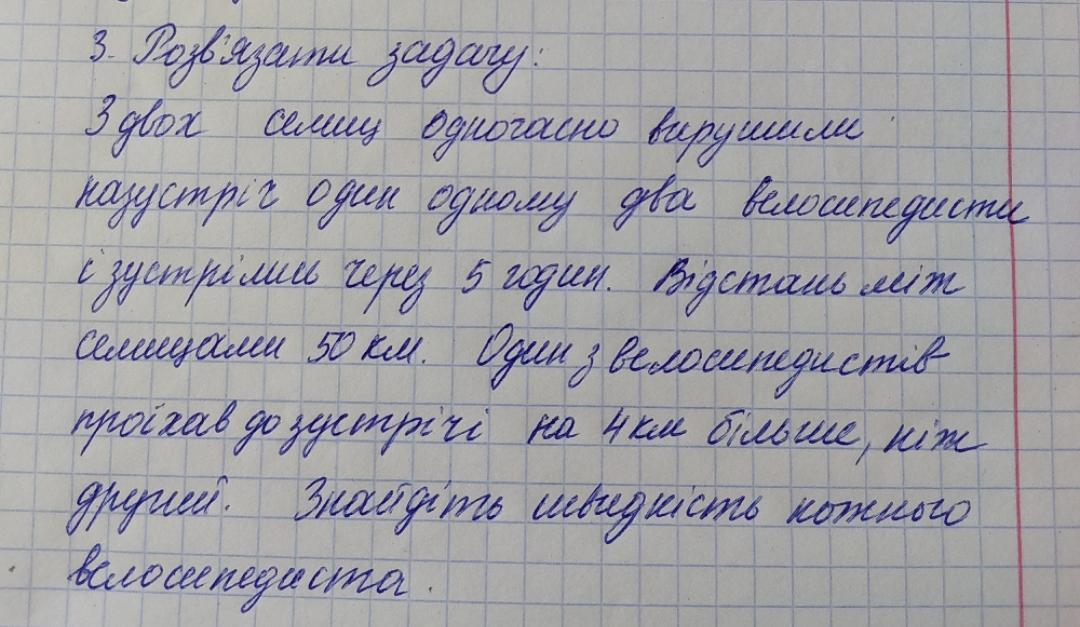 3. Розв'язати задачу:
З двох селищ одночасно вирушили
назустріч один одному два велосипедисти
і зустрілись через 5 годин. Відстань між
селищами 50 км. Один з велосипедистів
проїхав до зустрічі на 4 км більше, ніж
другий. Знайдіть швидкість кожного
велосипедиста.